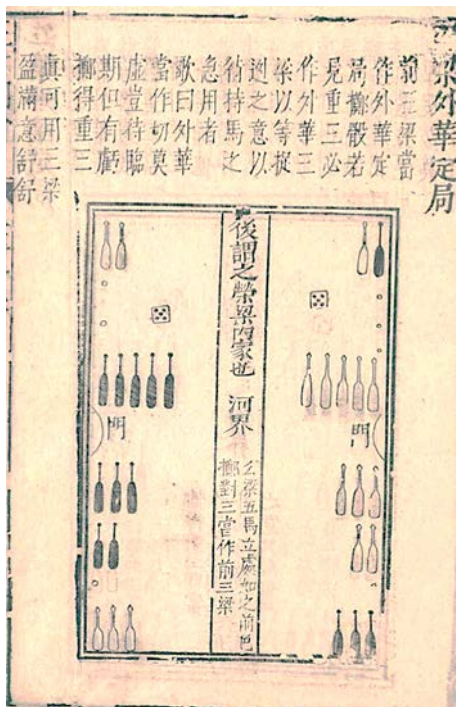 梁外華定局
前三梁當
作外華定
局擲骰若
見重三必
作外華三
梁以等捉
迥之意以
待持馬之
急用者
歌曰外華
當作切莫
虛豈待臨
期但有虧
擲得重三
真可用三梁
盈滿意舒舒
門
後謂之榮梁內家也 河界
么梁五馬立處如之前也
擲對三當作前三梁
門